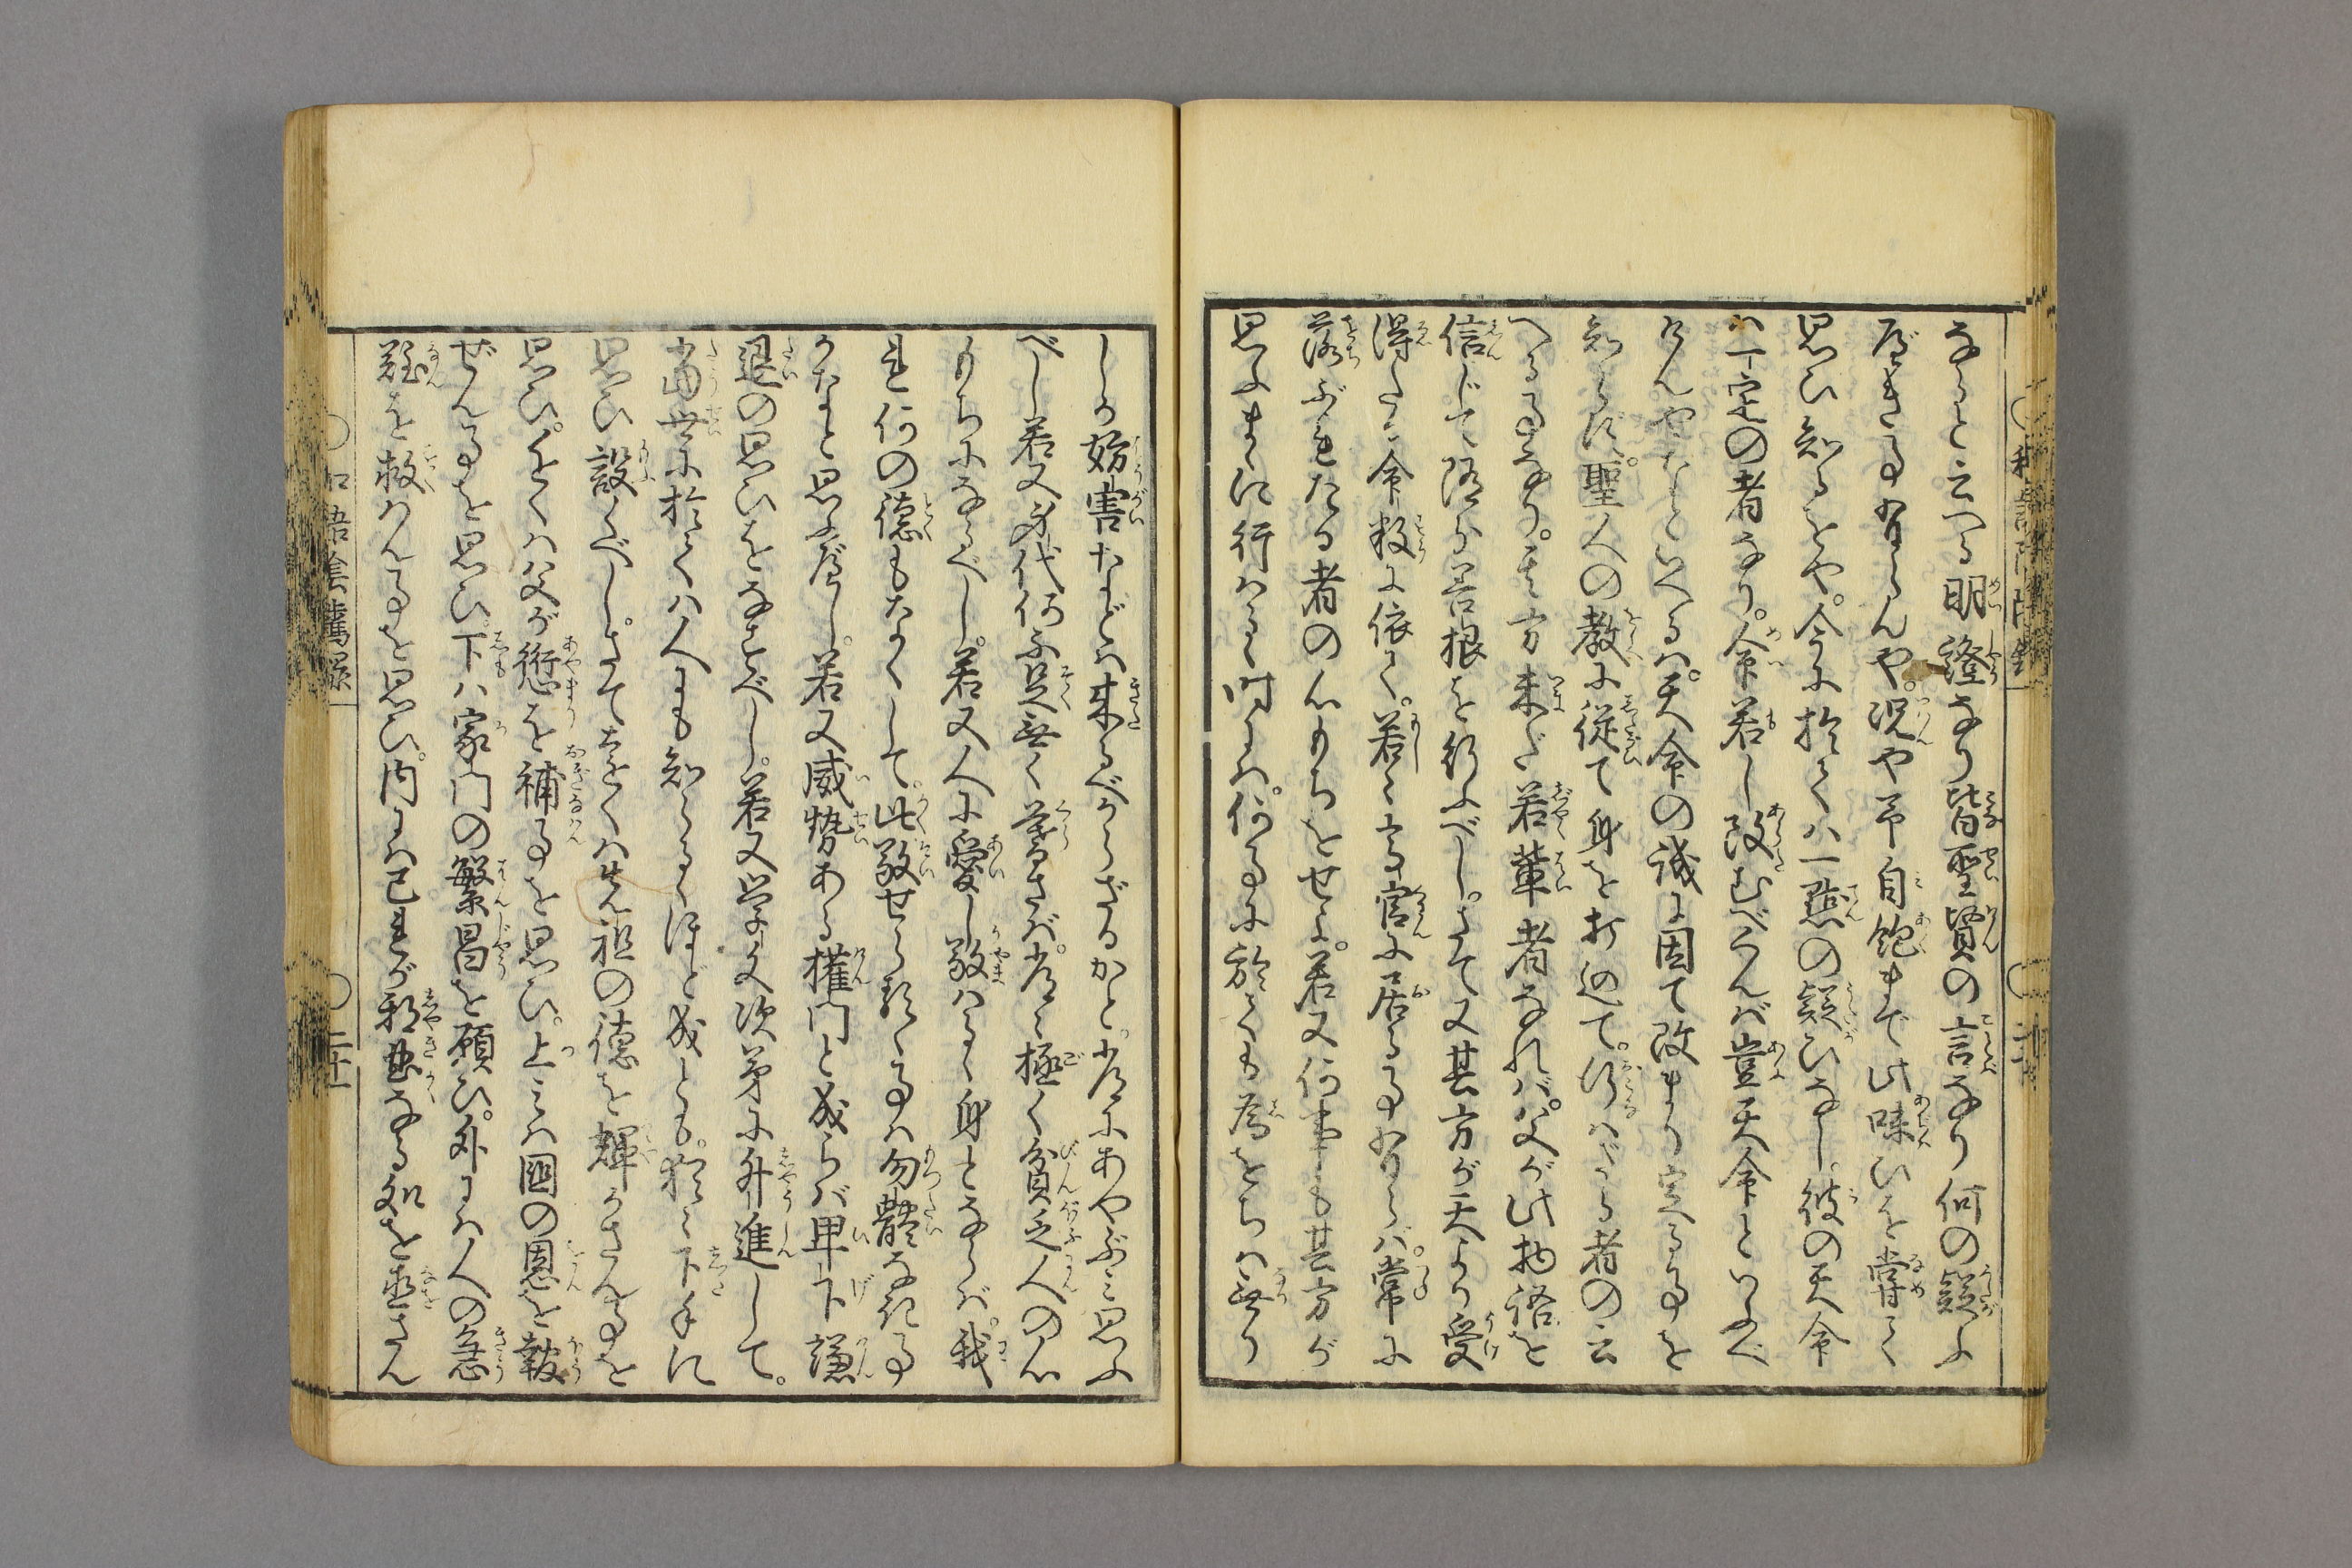 なりと云へる明證なり皆聖賢の言なり何の疑ふ
べき事有らんや。况や予自飽まで此味ひを甞て
思ひ知るをや。今に於ては一點の疑ひなし。彼の天命
は一定の者なり。命若し改むべくんば豈天命といふべ
けんやなどいへるは。天命の譏に因て改まり定る事を
知らず。聖人の教に従て身を打込て。行はざる者の云
へる事なり。其方未だ若輩者なれば。父が此物語を
信じて随分善根を行ふべし。さて又其方が天より受
得た命数に依て。若し高官に居る事有らば。常に
落ぶれたる者の心もちをせよ。若又何事も其方が
思ふまゝに行はるゝ時には。何事に於ても為をちは無り
しか妨害などは来るべからざるかと。常にあやぶみ思ふ
べし若又身代何不足無く暮さば。常に極て貧乏人の心
もちになるべし。若又人に愛し敬はるゝ身とならば。我
是何の徳もなくして。此敬せらるゝ事は勿體なき事
かなと思ふべし。若又威勢ある權門と成らば卑下謙
退の思ひをなすべし。若又学文次第に升進して。
当世に於ては人にも知らるゝほど成とも。猶々下手に
思ひ設くべし。さて遠くは先祖の徳を輝かさん事を
思ひ。近くは父が愆を補る事を思ひ。上には國の恩を報
ぜん事を思ひ。下は家門の繁昌を願ひ。外には人の急
難を救はん事を思ひ。内には己れが邪曲なる処を直さん
和語陰隲録
二十一